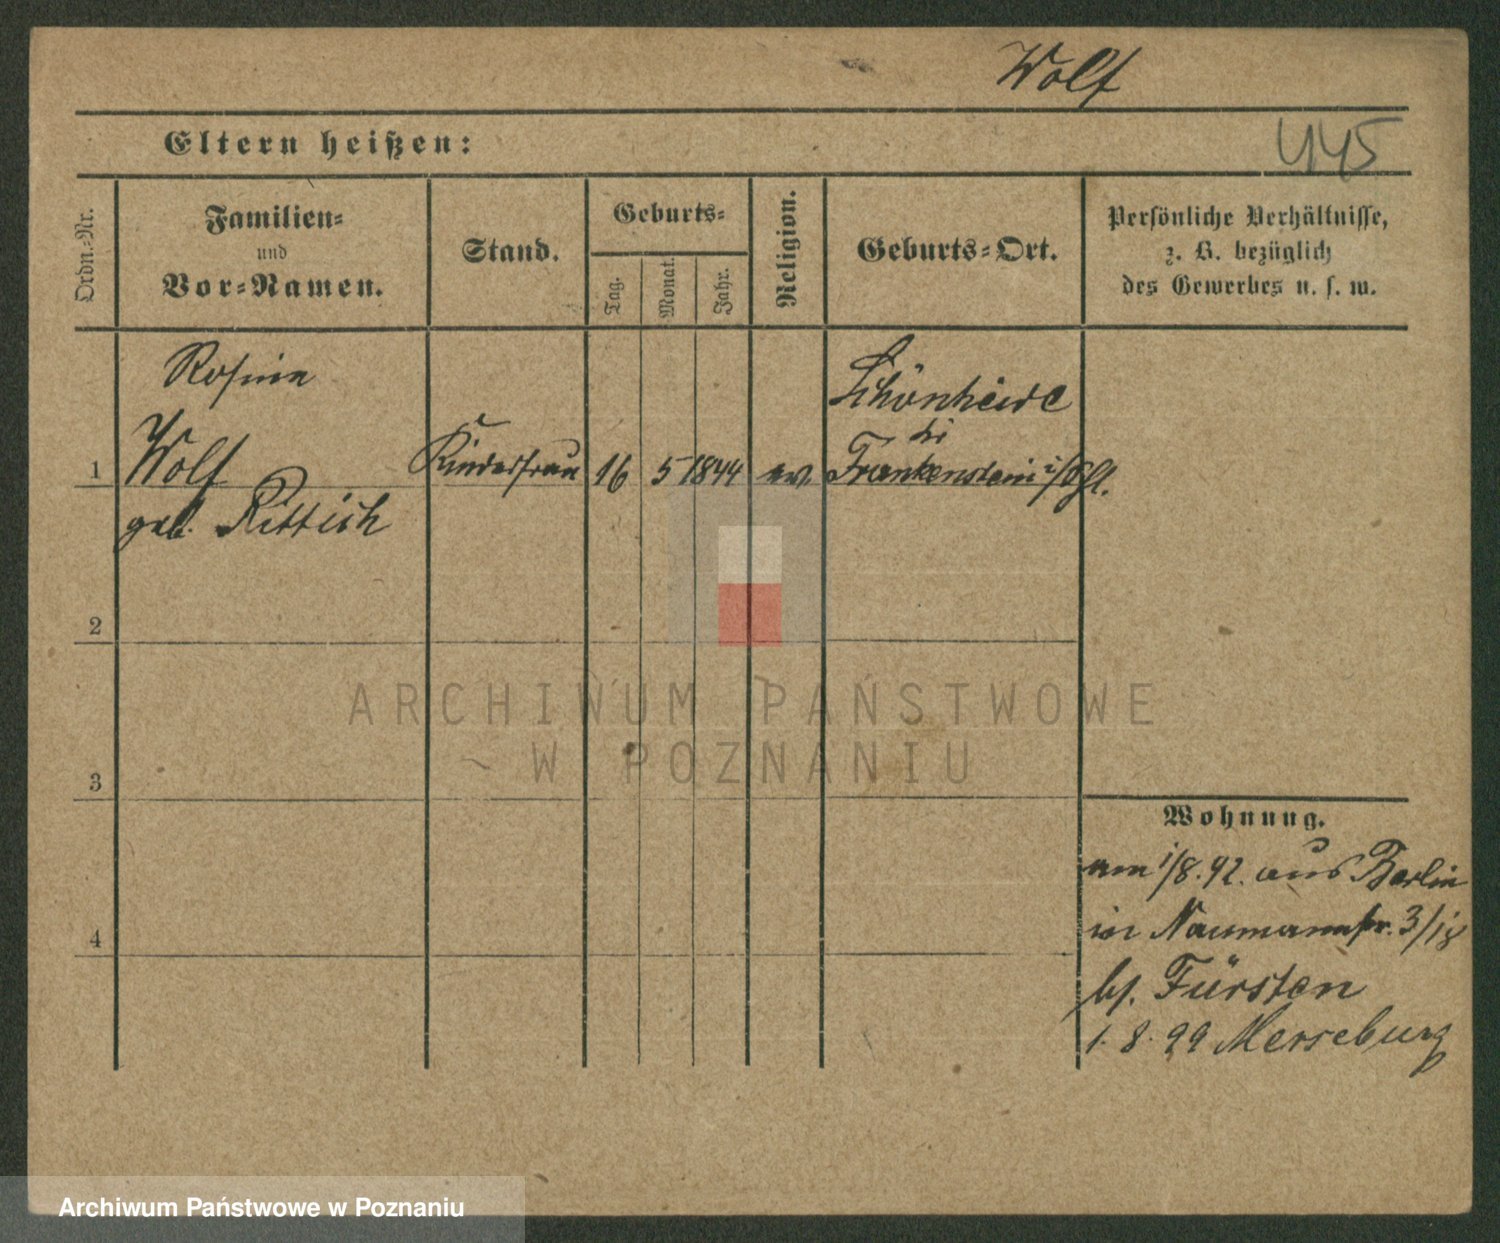 Wolf
Eltern heißen:
445
Ordn.-Nr.
Familien-
und
Vor-Namen.
Stand.
Geburts-
Tag.
Monat.
Jahr.
Religion.
Geburts-Ort.
Persönliche Verhältnisse,
z. B. bezüglich
des Gewerbes u. s. w.
Rosine
1 Wolf Kinderfrau 16 5 1844 ev. Schönheide
bei
Frankenstein i/Schl.
geb. Rittich
2
3
4
ARCHIWUM PAŃSTWOWE
W POZNANIU
Wohnung.
am 1/8. 92. aus Berlin
in Naumannstr. 3/18
bs. Fürsten
1. 8. 99 Merseburg
Archiwum Państwowe w Poznaniu